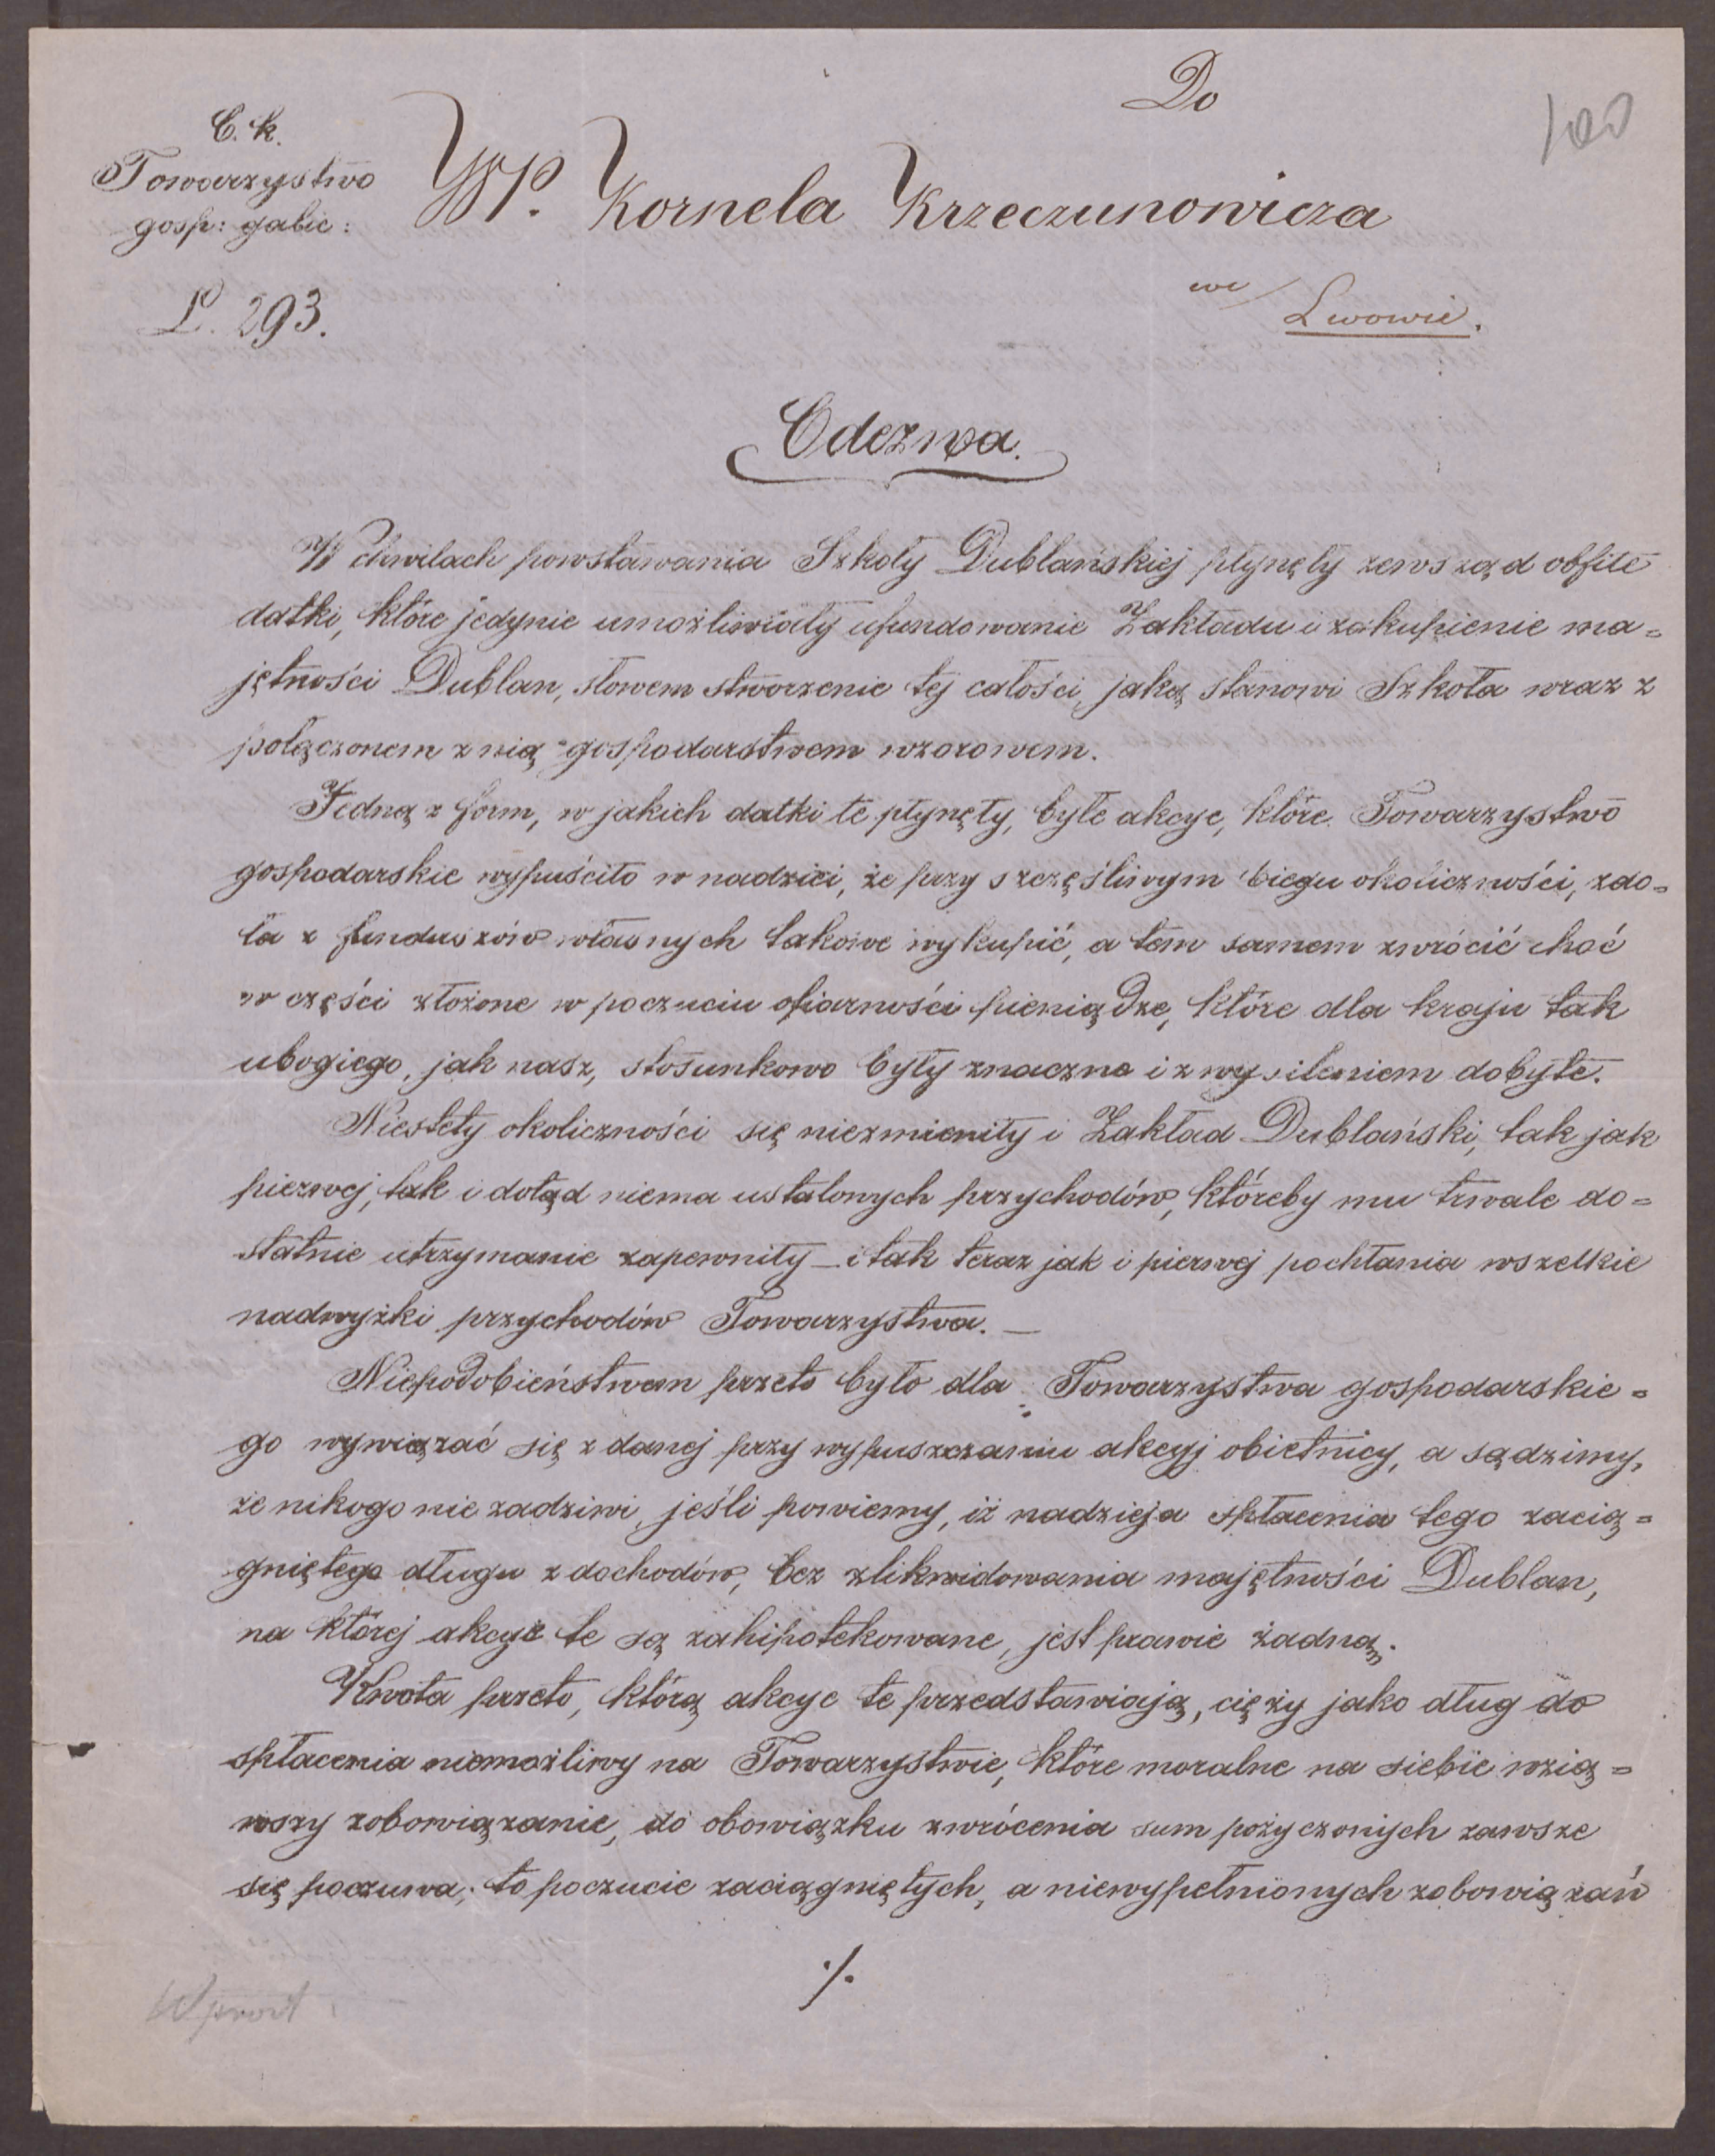 Do
100
C. k.
Towarzystwo
gosp: galic:
WP. Kornela Krzeczunowicza
L. 293.
we
Lwowie.
Odezwa.
W chwilach powstawania Szkoły Dublańskiej płynęły zewsząd obfite
datki, które jedynie umożliwiały ufundowanie Zakładu i zakupienie ma=
jętności Dublan, słowem stworzenie tej całości, jaką stanowi Szkoła wraz z
połączonem z nią gospodarstwem wzorowem.
Jedną z form, w jakich datki te płynęły, były akcye, które Towarzystwo
gospodarskie wypuściło w nadziei, że przy szczęśliwym biegu okoliczności, zdo=
ła z funduszów własnych takowe wykupić, a tem samem zwrócić choć
w części złożone w poczuciu ofiarności pieniądze, które dla kraju tak
ubogiego, jak nasz, stosunkowo były znaczne i z wysileniem dobyte.
Niestety okoliczności się niezmieniły i Zakład Dublański, tak jak
pierwej, tak i dotąd niema ustalonych przychodów, któreby mu trwale do=
statnie utrzymanie zapewniły – i tak teraz jak i pierwej pochłania wszelkie
nadwyżki przychodów Towarzystwa. –
Niepodobieństwem przeto było dla Towarzystwa gospodarskie=
go wywiązać się z danej przy wypuszczaniu akcyj obietnicy, a sądzimy,
że nikogo nie zadziwi, jeśli powiemy, iż nadzieja spłacenia tego zacią=
gniętego długu z dochodów, bez zlikwidowania majętności Dublan,
na której akcye te są zahipotekowane, jest prawie żadną.
Kwota przeto, którą akcye te przedstawiają, cięży jako dług do
spłacenia niemożliwy na Towarzystwie, które moralne na siebie wzią=
wszy zobowiązanie, do obowiązku zwrócenia sum pożyczonych zawsze
się poczuwa; to poczucie zaciągniętych, a niewypełnionych zobowiązań
./.